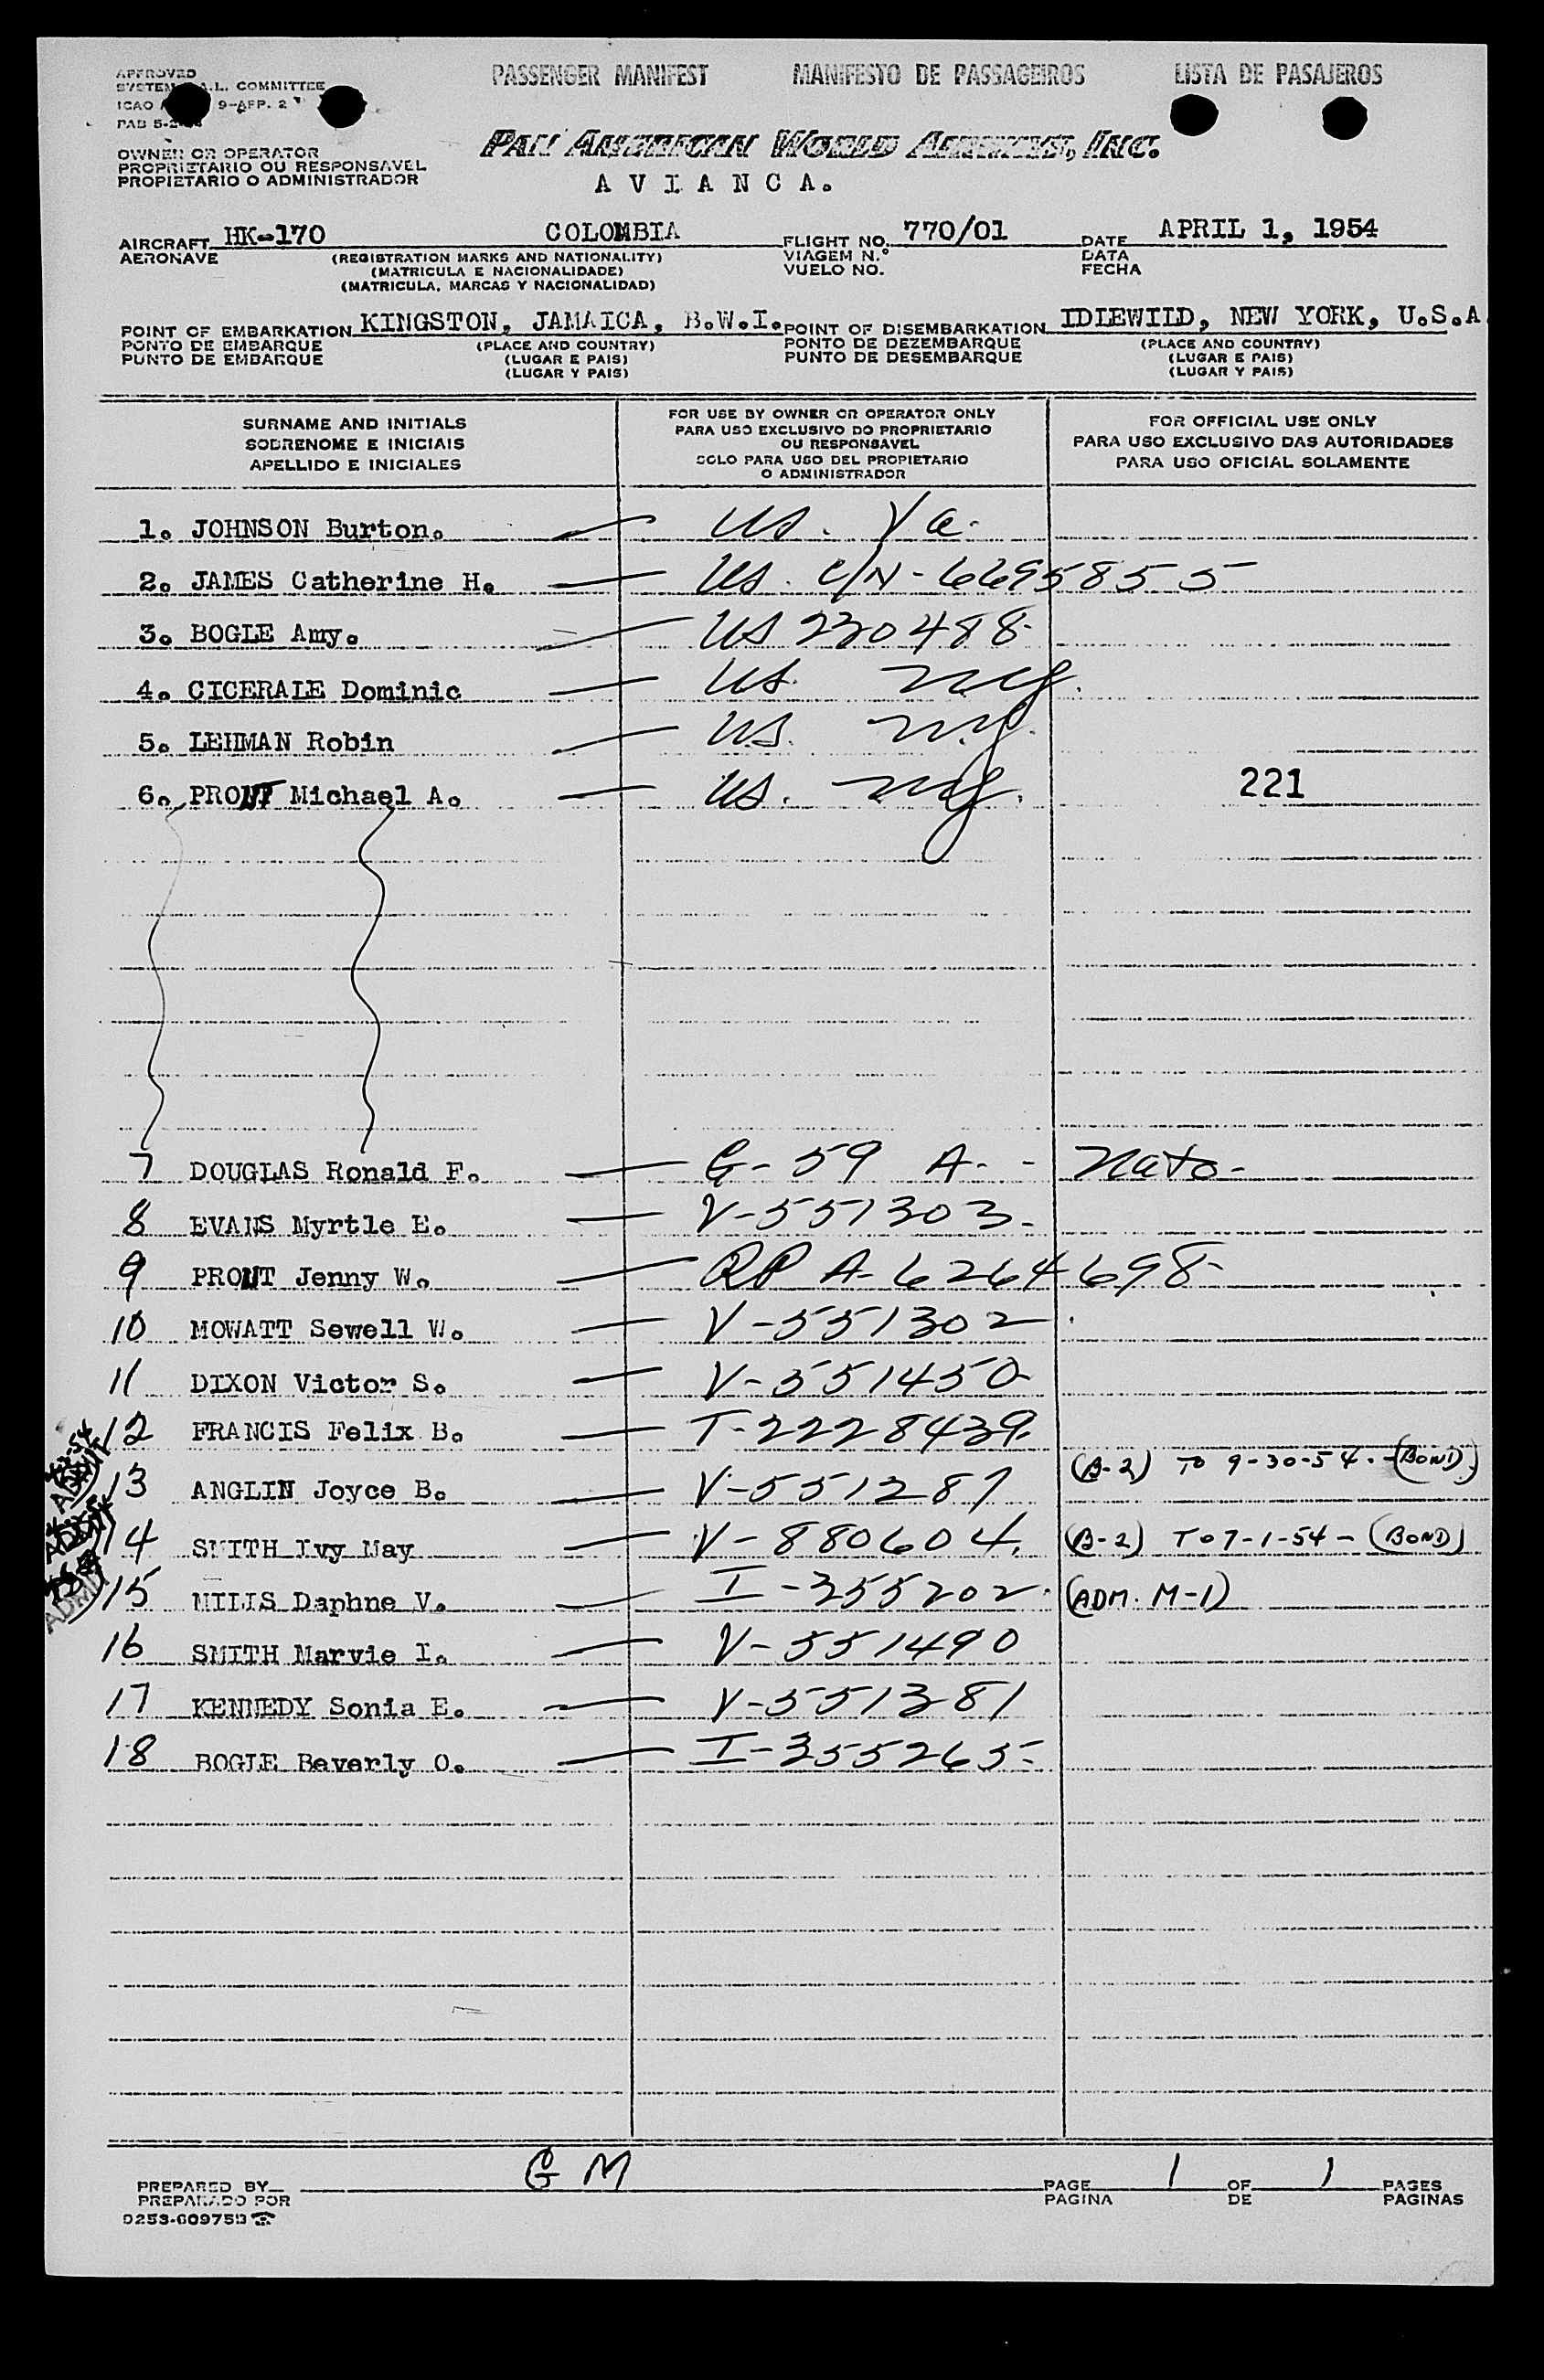 APPROVED
SYSTEM A.L. COMMITTEE
ICAO 9-APP. 2
PASSENGER MANIFEST MANIFESTO DE PASSAGEIROS LISTA DE PASAJEROS
PAN AMERICAN WORLD AIRWAYS, INC.
A V I A N C A.
OWNER OR OPERATOR
PROPRIETARIO OU RESPONSAVEL
PROPIETARIO O ADMINISTRADOR
AIRCRAFT HK-170 COLOMBIA FLIGHT NO. 770/01 DATE APRIL 1, 1954
AERONAVE (REGISTRATION MARKS AND NATIONALITY) VIAGEM N.º DATA
(MATRICULA E NACIONALIDADE) VUELO NO. FECHA
(MATRICULA, MARCAS Y NACIONALIDAD)
POINT OF EMBARKATION KINGSTON, JAMAICA, B.W.I. POINT OF DISEMBARKATION IDLEWILD, NEW YORK, U.S.A
PONTO DE EMBARQUE (PLACE AND COUNTRY) PONTO DE DEZEMBARQUE (PLACE AND COUNTRY)
PUNTO DE EMBARQUE (LUGAR E PAIS) PUNTO DE DESEMBARQUE (LUGAR E PAIS)
(LUGAR Y PAIS) (LUGAR Y PAIS)
SURNAME AND INITIALS
SOBRENOME E INICIAIS
APELLIDO E INICIALES
FOR USE BY OWNER OR OPERATOR ONLY
PARA USO EXCLUSIVO DO PROPRIETARIO
OU RESPONSAVEL
SOLO PARA USO DEL PROPIETARIO
O ADMINISTRADOR
FOR OFFICIAL USE ONLY
PARA USO EXCLUSIVO DAS AUTORIDADES
PARA USO OFICIAL SOLAMENTE
1. JOHNSON Burton. — US. Va.
2. JAMES Catherine H. — US. C/N-6695855
3. BOGLE Amy. — US 230488-
4. CICERALE Dominic — US. NY.
5. LEHMAN Robin — US. N.Y.
6. PROUT Michael A. — US. NY. 221
7 DOUGLAS Ronald F. — G-59 A.- Nato-
8 EVANS Myrtle E. — V-551303-
9 PROUT Jenny W. — RP A-6264698-
10 MOWATT Sewell W. — V-551302.
11 DIXON Victor S. — V-551450-
12 FRANCIS Felix B. — T-2228439.
13 ANGLIN Joyce B. — V-551287 (B-2) TO 9-30-54.-(BOND)
14 SMITH Ivy May — V-880604. (B-2) TO 7-1-54-(BOND)
15 MILLS Daphne V. — I-355202. (ADM. M-1)
16 SMITH Marvie I. — V-551490
17 KENNEDY Sonia E. — V-551381
18 BOGLE Beverly O. — I-355265-
PREPARED BY G M PAGE 1 OF 1 PAGES
PREPARADO POR PAGINA DE PAGINAS